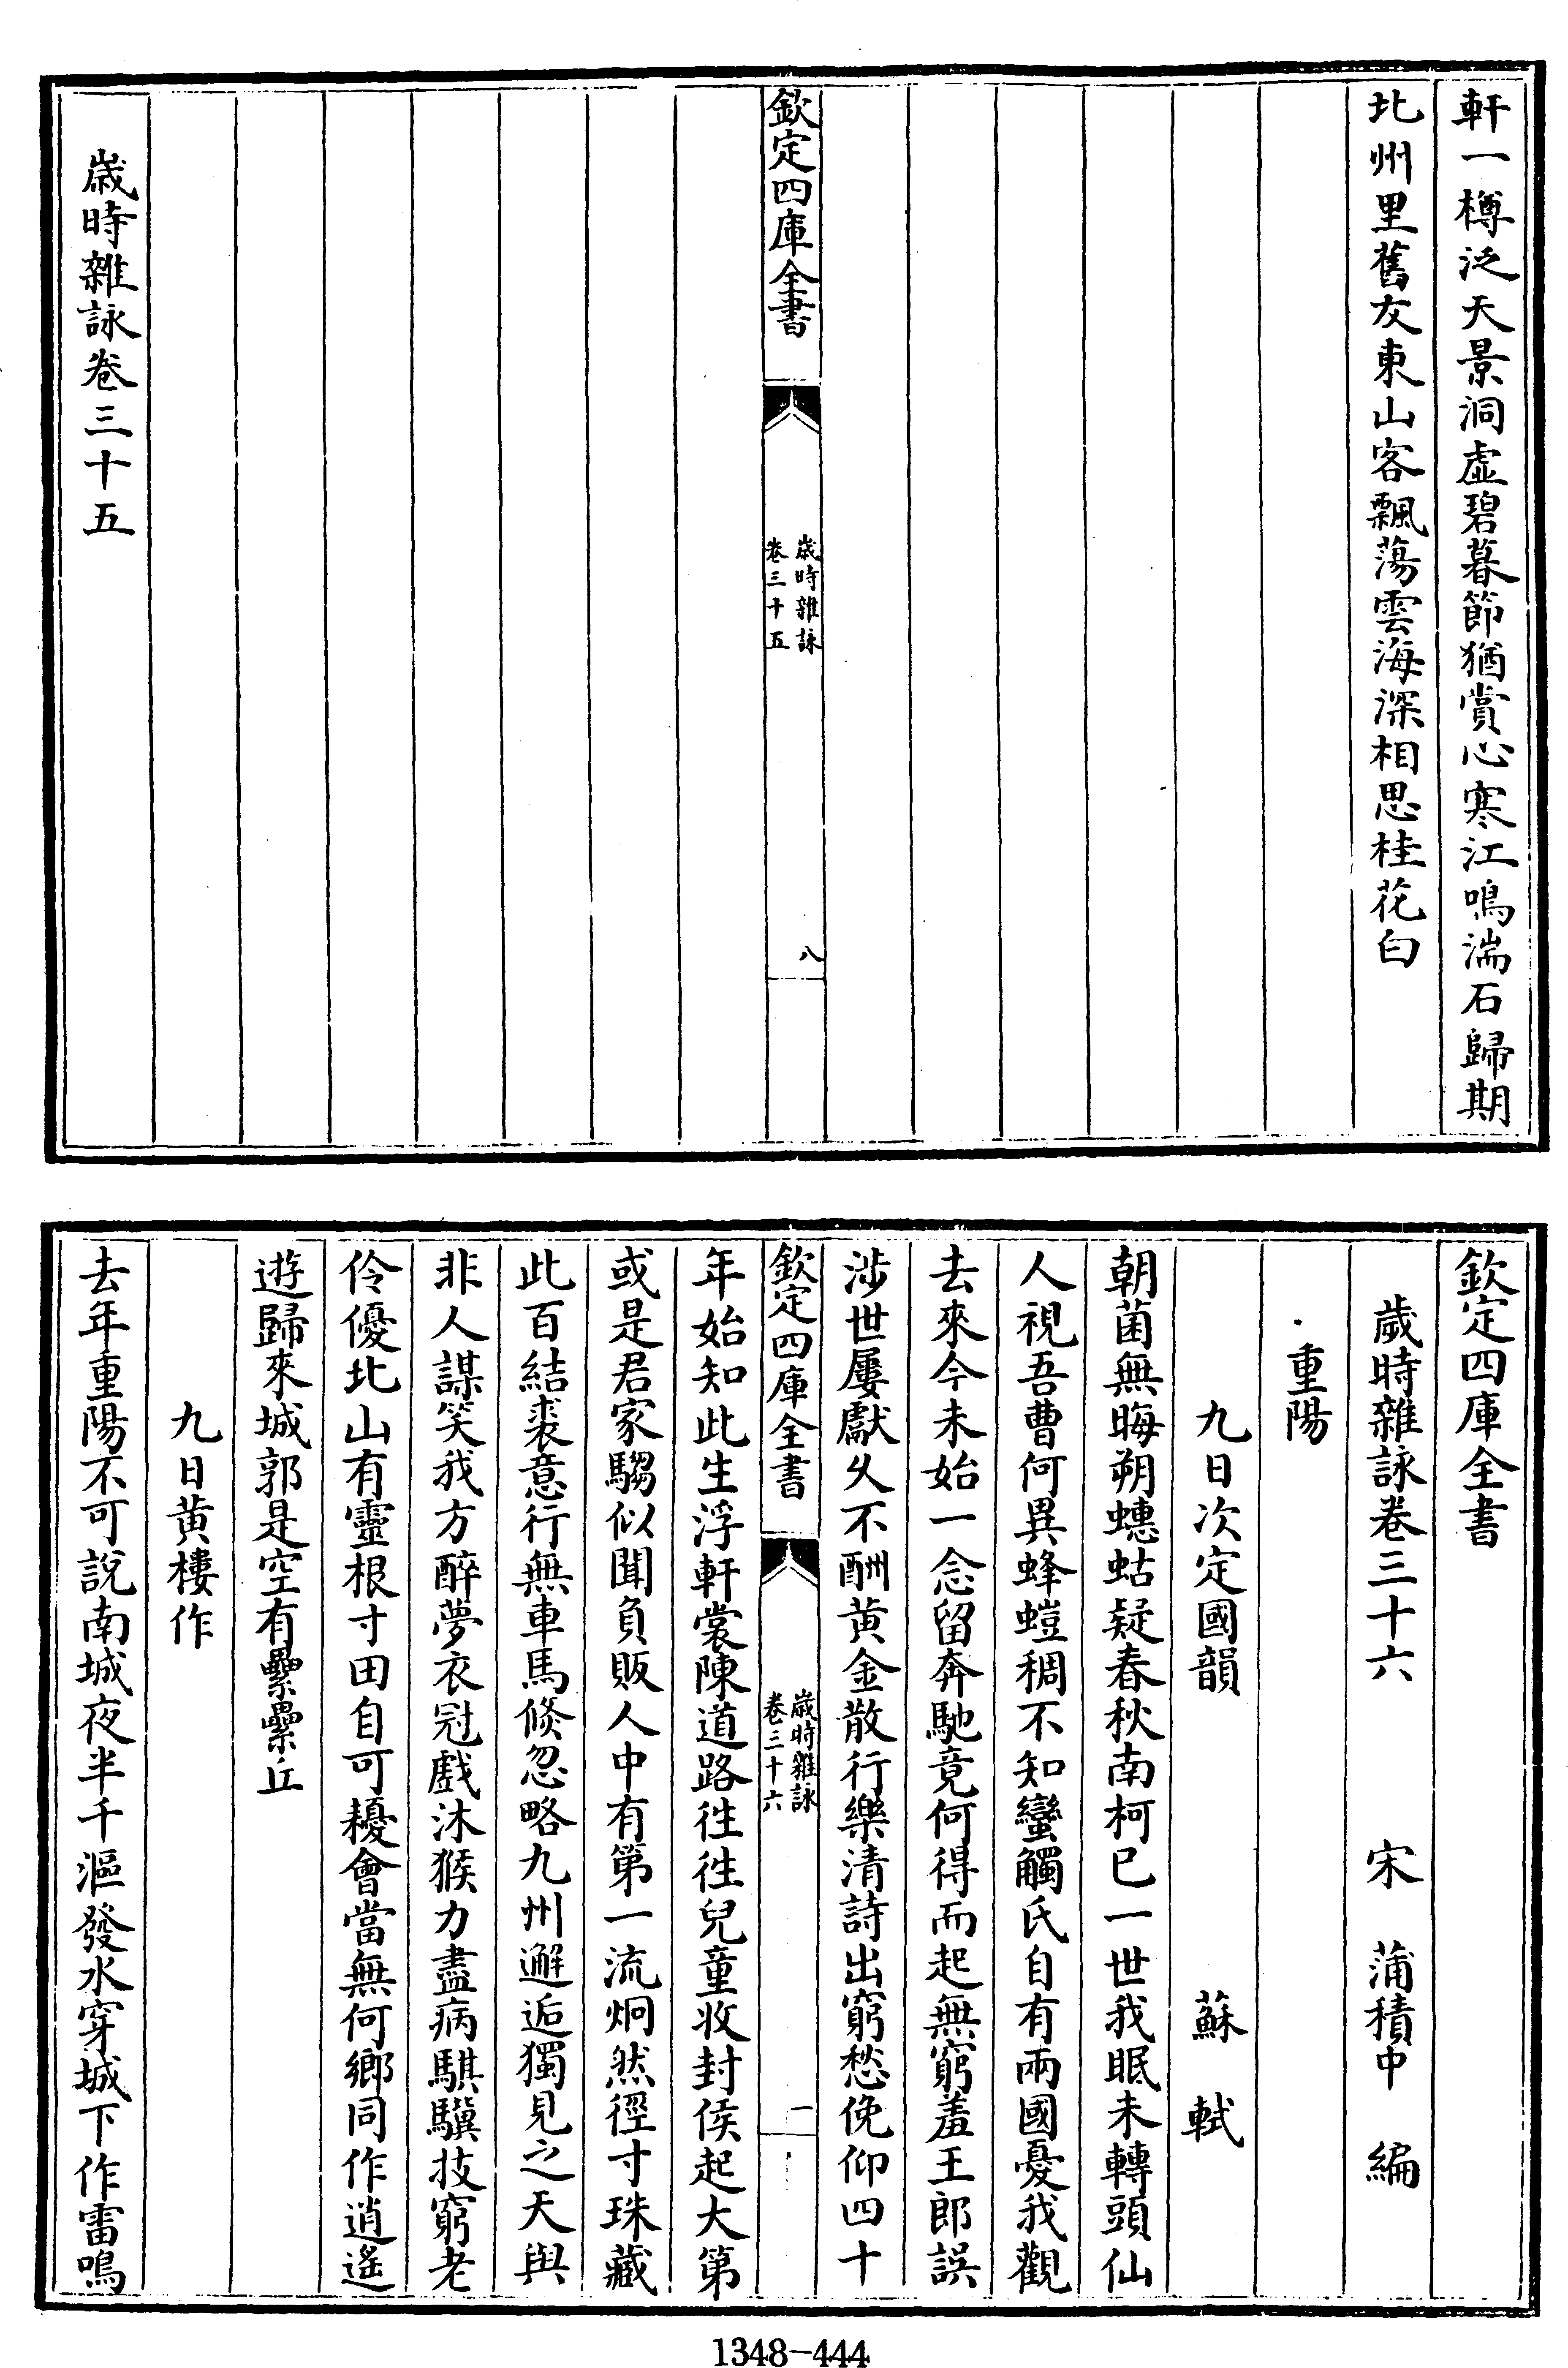 軒一樽泛天景洞虛碧暮節猶賞心寒江鳴湍石歸期
北州里舊友東山客飄蕩雲海深相思桂花白
欽定四庫全書
歲時雜詠
卷三十五
八
歲時雜詠卷三十五
欽定四庫全書
歲時雜詠卷三十六 宋 蒲積中 編
重陽
九日次定國韻 蘇軾
朝菌無晦朔蟪蛄疑春秋南柯已一世我眠未轉頭仙
人視吾曹何異蜂螘稠不知蠻觸氏自有兩國憂我觀
去來今未始一念留奔馳竟何得而起無窮羞王郎誤
涉世屢獻久不酬黃金散行樂清詩出窮愁俛仰四十
年始知此生浮軒裳陳道路徃徃兒童收封侯起大第
欽定四庫全書
歲時雜詠
卷三十六
一
或是君家騶似聞負販人中有第一流炯然徑寸珠藏
此百結裘意行無車馬倐忽略九州邂逅獨見之天與
非人謀笑我方醉夢衣冠戲沐猴力盡病騏驥技窮老
伶優北山有靈根寸田自可耰會當無何鄉同作逍遙
遊歸來城郭是空有纍纍丘
九日黃樓作
去年重陽不可說南城夜半千漚發水穿城下作雷鳴
1348-444